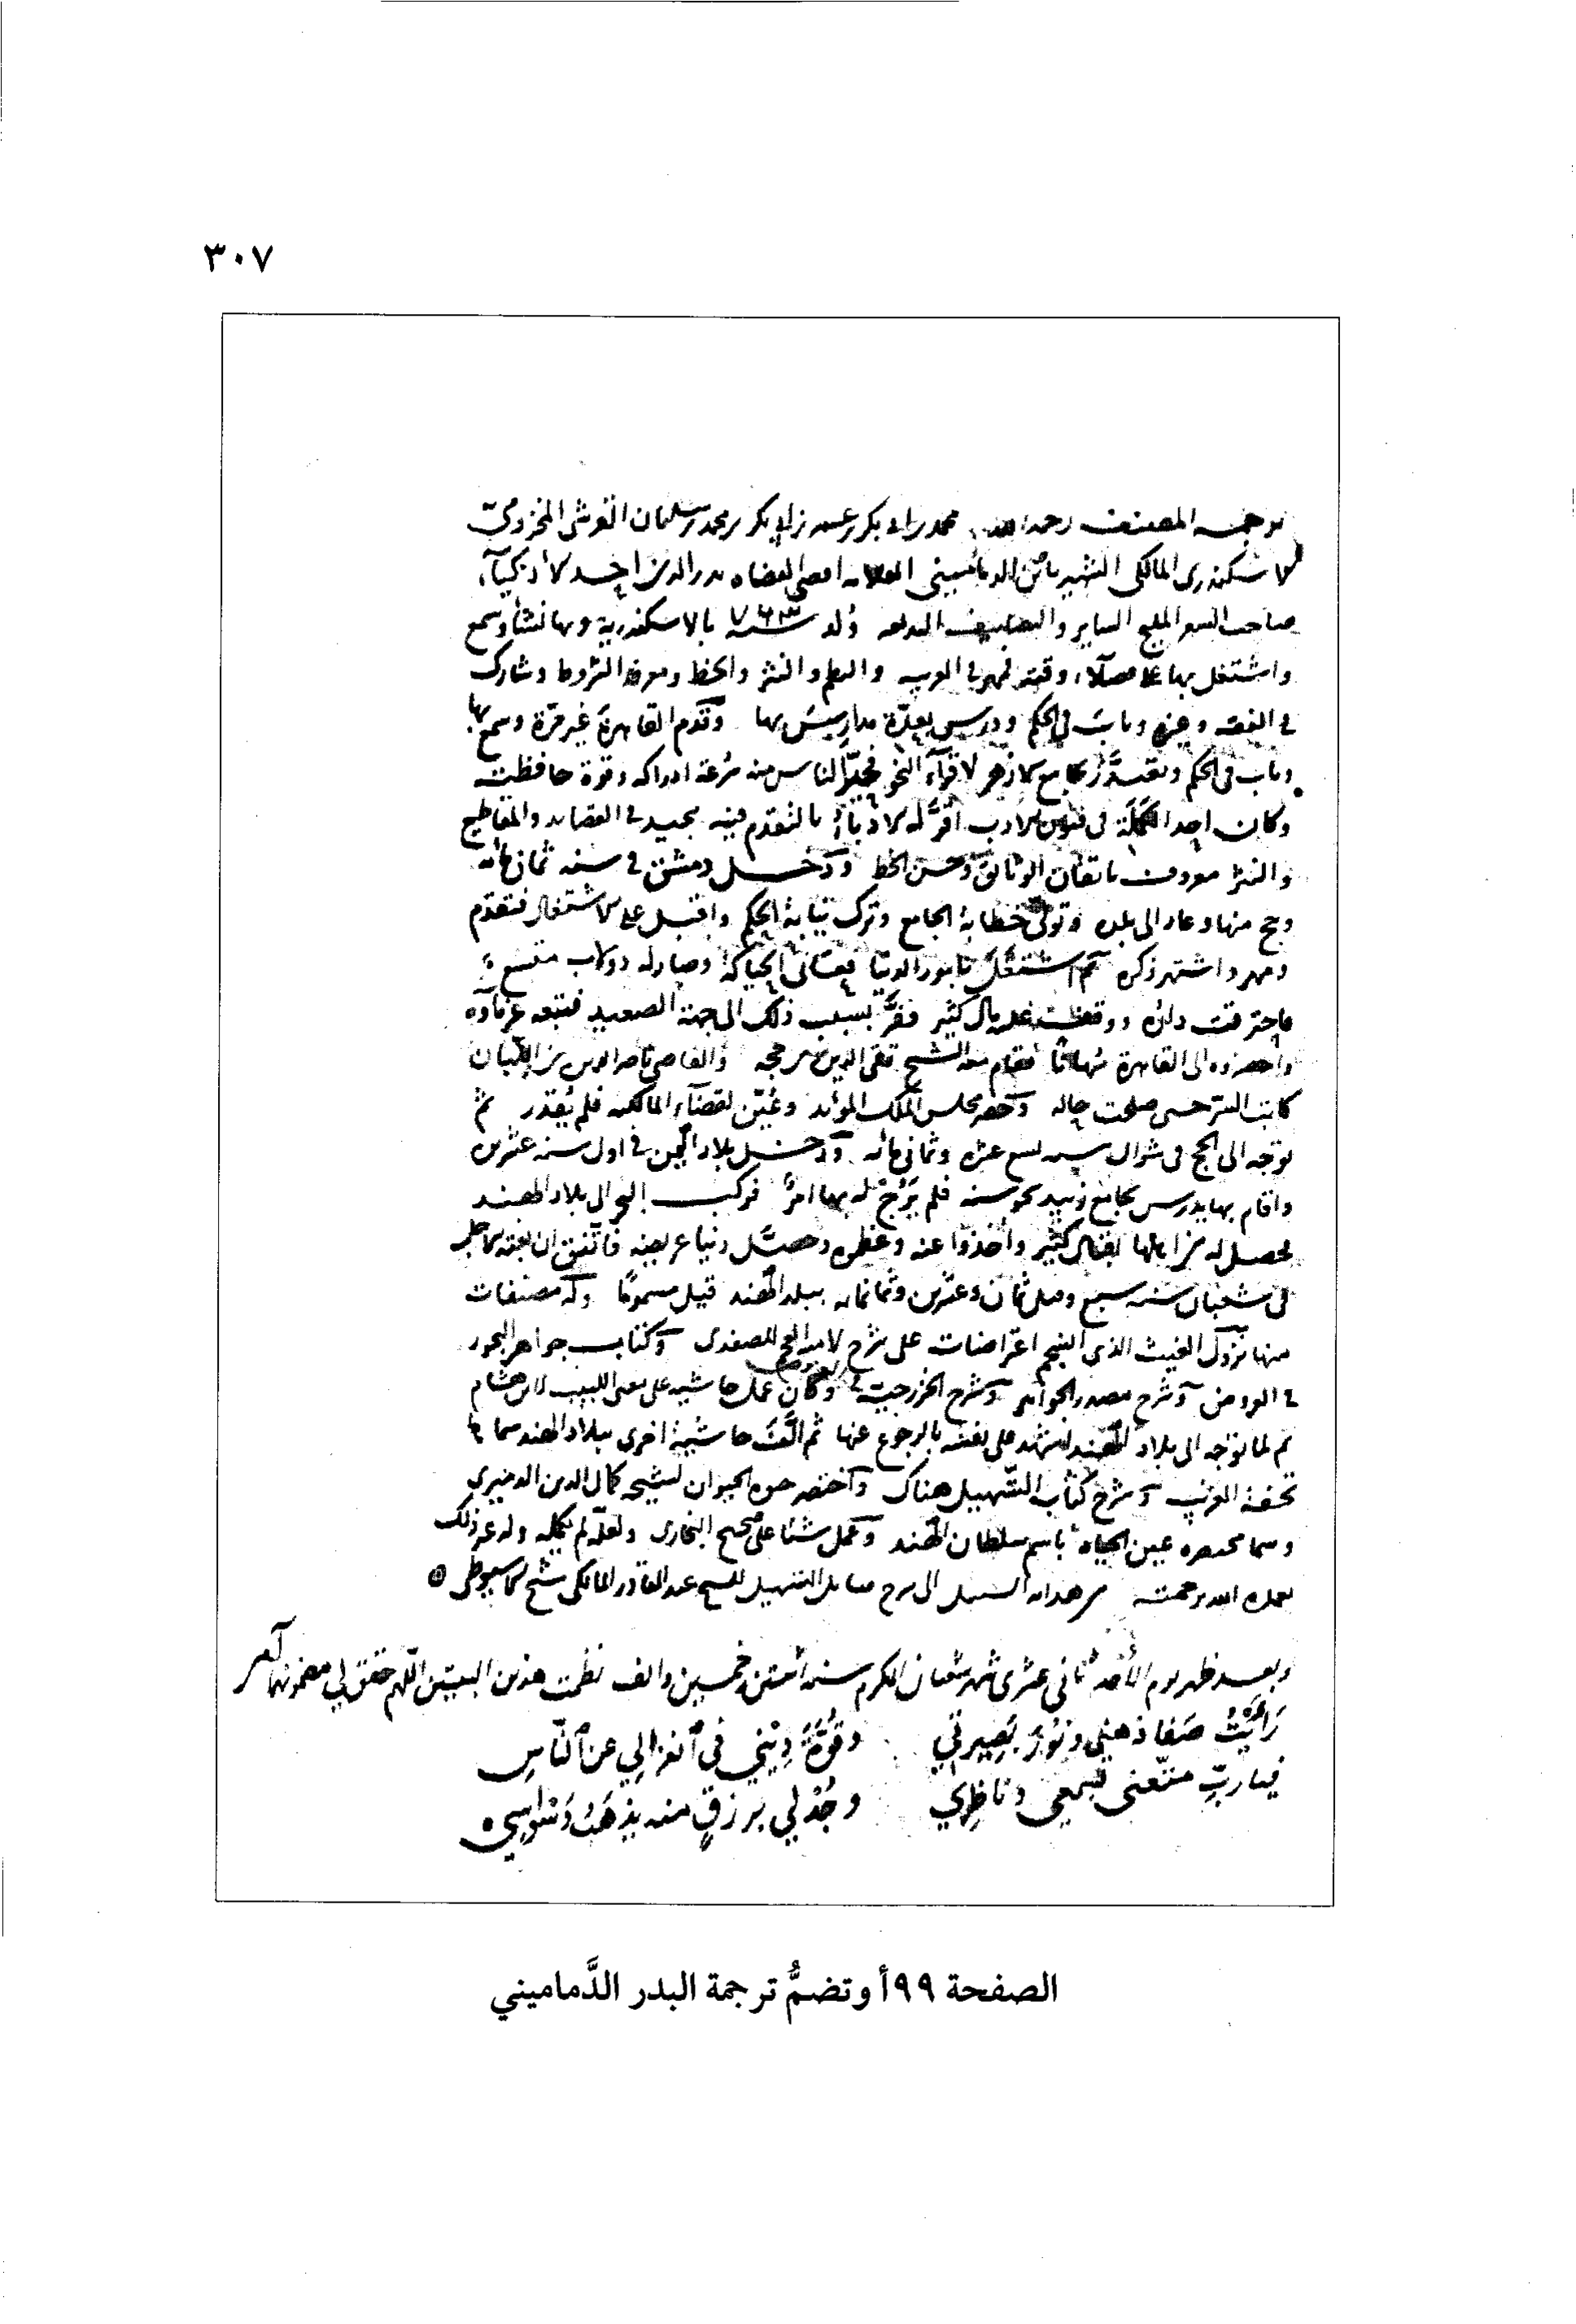 ٣٠٧
ترجمة المصنف رحمه الله محمد بن ابي بكر بن عمر بن ابي بكر بن محمد بن سليمان القرشي المخزومي
الاسكندري المالكي الشهير بابن الدماميني العلامة اقضى القضاه بدر الدين احد الأذكياء،
صاحب الشعر المليح الساير والتصانيف البديعه وُلد سنة ٧٦٣ بالاسكندرية وبها نشأ وسمع
واشتغل بها على فضلآء وقته فمهر في العربيه والنظم والنثر والخط ومعرفة الشروط وشارك
في الفقه وغيره وناب في الحكم ودرس بعدّة مدارس بها وقدم القاهرة غير مرّة وسمع بها
وناب في الحكم وتصدَّر بالجامع الازهر لاقرآء النحو فتحيّر الناس من سُرعة ادراكه وقوة حافظته
وكان احد الكَمَلَة في فنون الادب اقرَّ له الادبآء بالتقدم فيه يجيد في القصايد والمقاطيع
والنثر معروف باتقان الوثائق وحسن الخط ودخل دمشق في سنه ثمانمائه
وحج منها وعاد الى بلده وتولى خطابة الجامع وترك نيابة الحكم واقبل على الاشتغال فتقدّم
ومهر واشتهر ذكره ثم اشتغل بامور الدنيا فعانى الحياكة وصار له دولاب متسع
فاحترقت داره ووقعت عليه مال كثير ففرَّ بسبب ذلك الى جهة الصعيد فتبعه غرماؤه
واحضروه الى القاهرة مُهانًا فقام معه الشيخ تقي الدين بن حجه والقاضي ناصر الدين بن البارزي
كاتب السّر حتى صلحت حاله وحضر مجلس الملك المؤيد وعُيّن لقضآء المالكيه فلم يُقدر ثم
توجه الى الحج في شوال سنه تسع عشره وثمانمائه ودخل بلاد اليمن في اول سنه عشرين
واقام بها يدرس بجامع زبيد نحو سنه فلم يَرُجْ له بها امرٌ فركب البحر الى بلاد الهند
فحصل له من اهلها اقبال كثير واخذوا عنه وعظموه وحصّل دنيا عريضه فاتفق ان بغته الاجل
في شعبان سنه سبع وقيل ثمان وعشرين وثمانمائه ببلد الهند قيل مسمومًا وله مصنفات
منها نزول الغيث الذي انسجم اعتراضات على شرح لامية العجم للصفدي وكتاب جواهر البحور
في العروض وشرح مصدر الجواهر وشرح الخزرجية في العروض وكان عمل حاشيه على مغني اللبيب لابن هشام
ثم لما توجه الى بلاد الهند اشهد على نفسه بالرجوع عنها ثم الّف حاشية اخرى ببلاد الهند سماها
تحفة الغريب وشرح كتاب التسهيل هناك واختصر حيوة الحيوان لشيخه كمال الدين الدميري
وسما مختصره عين الحياه باسم سلطان الهند وعمل شيئًا على صحيح البخاري ولعله لم يكمله وله غير ذلك
تغمده الله برحمته من هداية السبيل الى شرح مسايل التسهيل للشيخ عبد القادر المالكي شيخ السيوطي
وبعد ظهر يوم الأحد ثاني عشري شهر شعبان المكرم سنه اثنتين وخمسين والف نظمت هذين البيتين اللهم حقق لي مضمونهما آمين
رَأَيْتُ صَفا ذهني ونورَ بَصيرتي وقُوَّةَ دِيْني في ٱنعزالي عن ٱلنّاسِ
فياربِّ متّعني بسمعي وناظِري وجُدْ لي برزقٍ منه يذهَبُ وَسْواسي
الصفحة ٩٩أ وتضمُّ ترجمة البدر الدَّماميني